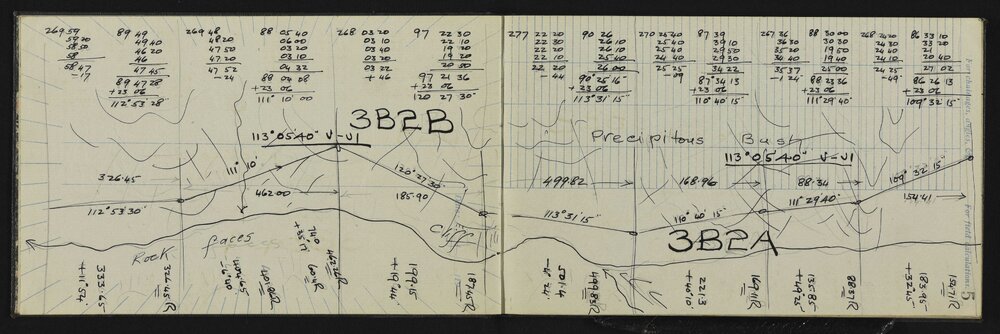 269 59
59 20
58 50
58
58 47
-17
89 49
49 40
46 20
46
47 45
89 47 28
+23 06
112° 53' 28"
269 48
48 20
47 50
47 20
47 52
-24
88 05 40
06 00
03 20
03 10
04 32
88 04 08
+23 06
111 10 00
268 03 20
03 40
03 10
03 20
03 22
+46
97 22 30
22 10
19 20
19 00
20 00
97 21 36
+23 06
120 27 30
3B2B
113° 05' 40" V-VI
111° 10'
326.45
462.00
120° 27' 30"
185.90
112° 53' 30"
Rock faces
Cliff
333.65
+11° 54'
326.45 R
404.65
-6° 40'
199.15
+19° 44'
187.45 R
277 22 30
22 20
22 20
22 10
22 20
-44
90 26
26 10
26 10
25 40
26 00
90° 25' 16"
+23 06
113° 31' 15"
270 25 40
25 40
25 40
24 40
25 25
-09
87 39
39 10
29 50
29 30
34 22
87° 34' 13
+23 06
110° 40' 15"
267 36
36 30
35 20
34 40
35 37
-1 24
88 30 00
30 30
19 50
19 40
25 00
88 23 36
+23 06
111° 29' 40"
268 24 20
24 30
24 10
24 40
24 25
-49
86 33 10
33 20
21
20 40
27 02
86 26 13
+23 06
109° 32' 15"
Precipitous Bush
113° 05' 40" V-VI
499.82
168.96
88.34
109° 32' 15"
154.41
111° 29' 40"
113° 31' 15"
110° 40' 15"
3B2A
501.4
-4° 24'
499.85 R
221.3
+40° 10'
169.11 R
135.85
+49° 25'
88.37 R
183.95
+32.45
154.71 R
5
For field calculations